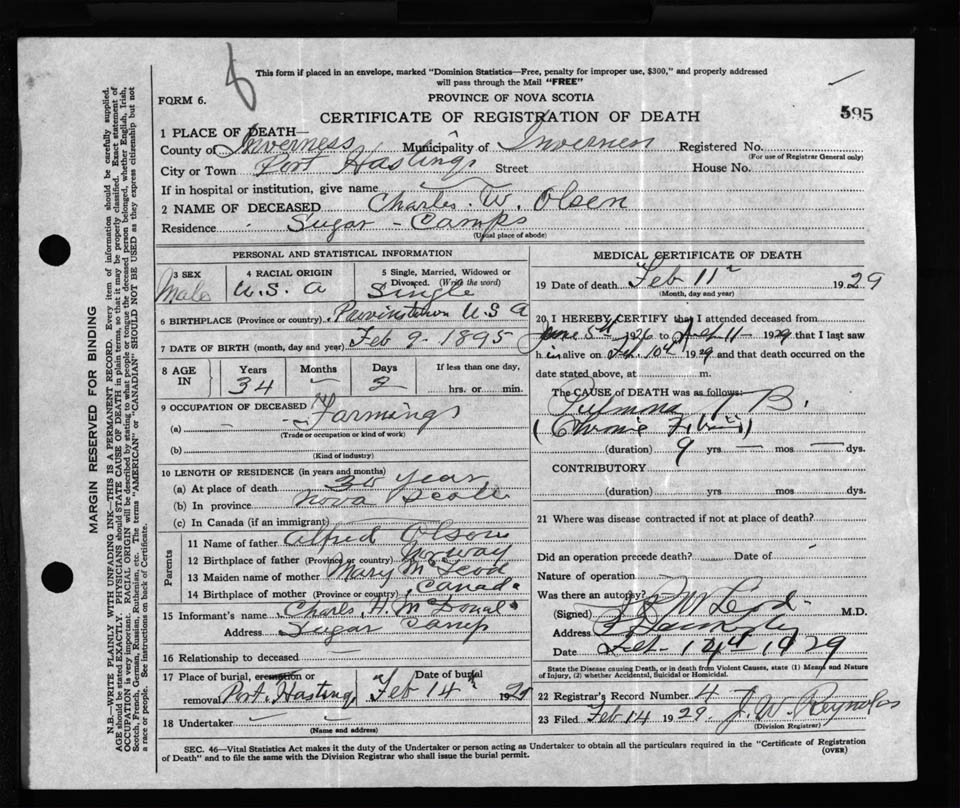 8
This form if placed in an envelope, marked "Dominion Statistics—Free, penalty for improper use, $300," and properly addressed
will pass through the Mail "FREE"
FORM 6.
PROVINCE OF NOVA SCOTIA
CERTIFICATE OF REGISTRATION OF DEATH
595
1 PLACE OF DEATH—
County of Inverness Municipality of Inverness Registered No.
(For use of Registrar General only)
City or Town Port Hastings Street House No.
If in hospital or institution, give name
2 NAME OF DECEASED Charles. W. Olsen
Residence Sugar - Camps
(Usual place of abode)
PERSONAL AND STATISTICAL INFORMATION
3 SEX Male
4 RACIAL ORIGIN U.S.A
5 Single, Married, Widowed or Divorced. (Write the word) Single
6 BIRTHPLACE (Province or country) U S A
7 DATE OF BIRTH (month, day and year) Feb 9. 1895
8 AGE IN Years 34 Months — Days 2 If less than one day, hrs. or min.
9 OCCUPATION OF DECEASED
(a) Farming
(Trade or occupation or kind of work)
(b)
(Kind of industry)
10 LENGTH OF RESIDENCE (in years and months)
(a) At place of death 34 years
(b) In province Nova Scotia
(c) In Canada (if an immigrant)
Parents
11 Name of father Alfred Olson
12 Birthplace of father (Province or country) Norway
13 Maiden name of mother Mary McLeod
14 Birthplace of mother (Province or country) Canada
15 Informant's name Charls H. McDonald
Address Sugar Camp
16 Relationship to deceased —
17 Place of burial, cremation or removal Port Hasting Date of burial Feb 14th 1929
18 Undertaker — —
(Name and address)
MEDICAL CERTIFICATE OF DEATH
19 Date of death Feb 11 1929
(Month, day and year)
20 I HEREBY CERTIFY that I attended deceased from
June 5th 1926 to Feb 11— 1929 that I last saw
h im alive on Feb. 10th 1929 and that death occurred on the
date stated above, at m.
The CAUSE OF DEATH was as follows:
T B.
(Chronic)
(duration) 9 yrs — mos — dys.
CONTRIBUTORY
(duration) yrs mos dys.
21 Where was disease contracted if not at place of death?
Did an operation precede death? Date of
Nature of operation
Was there an autopsy?
(Signed) McLeod M.D.
Address
Date Feb- 14th 1929
State the Disease causing Death, or in death from Violent Causes, state (1) Means and Nature
of Injury, (2) whether Accidental, Suicidal or Homicidal.
22 Registrar's Record Number 4
23 Filed Feb 14 1929. J. W. Reynolds
(Division Registrar)
SEC. 46—Vital Statistics Act makes it the duty of the Undertaker or person acting as Undertaker to obtain all the particulars required in the "Certificate of Registration
of Death" and to file the same with the Division Registrar who shall issue the burial permit. (OVER)
MARGIN RESERVED FOR BINDING
N.B.—WRITE PLAINLY, WITH UNFADING INK—THIS IS A PERMANENT RECORD. Every item of information should be carefully supplied.
AGE should be stated EXACTLY. PHYSICIANS should STATE CAUSE OF DEATH in plain terms, so that it may be properly classified. Exact statement of
OCCUPATION is very important. RACIAL ORIGIN will be described by stating to what people or tongue the deceased person belonged, whether English, Irish,
Scotch, French, German, Russian, Ruthenian, etc. The terms "AMERICAN" or "CANADIAN" SHOULD NOT BE USED as they express citizenship but not
a race or people. See instructions on back of Certificate.